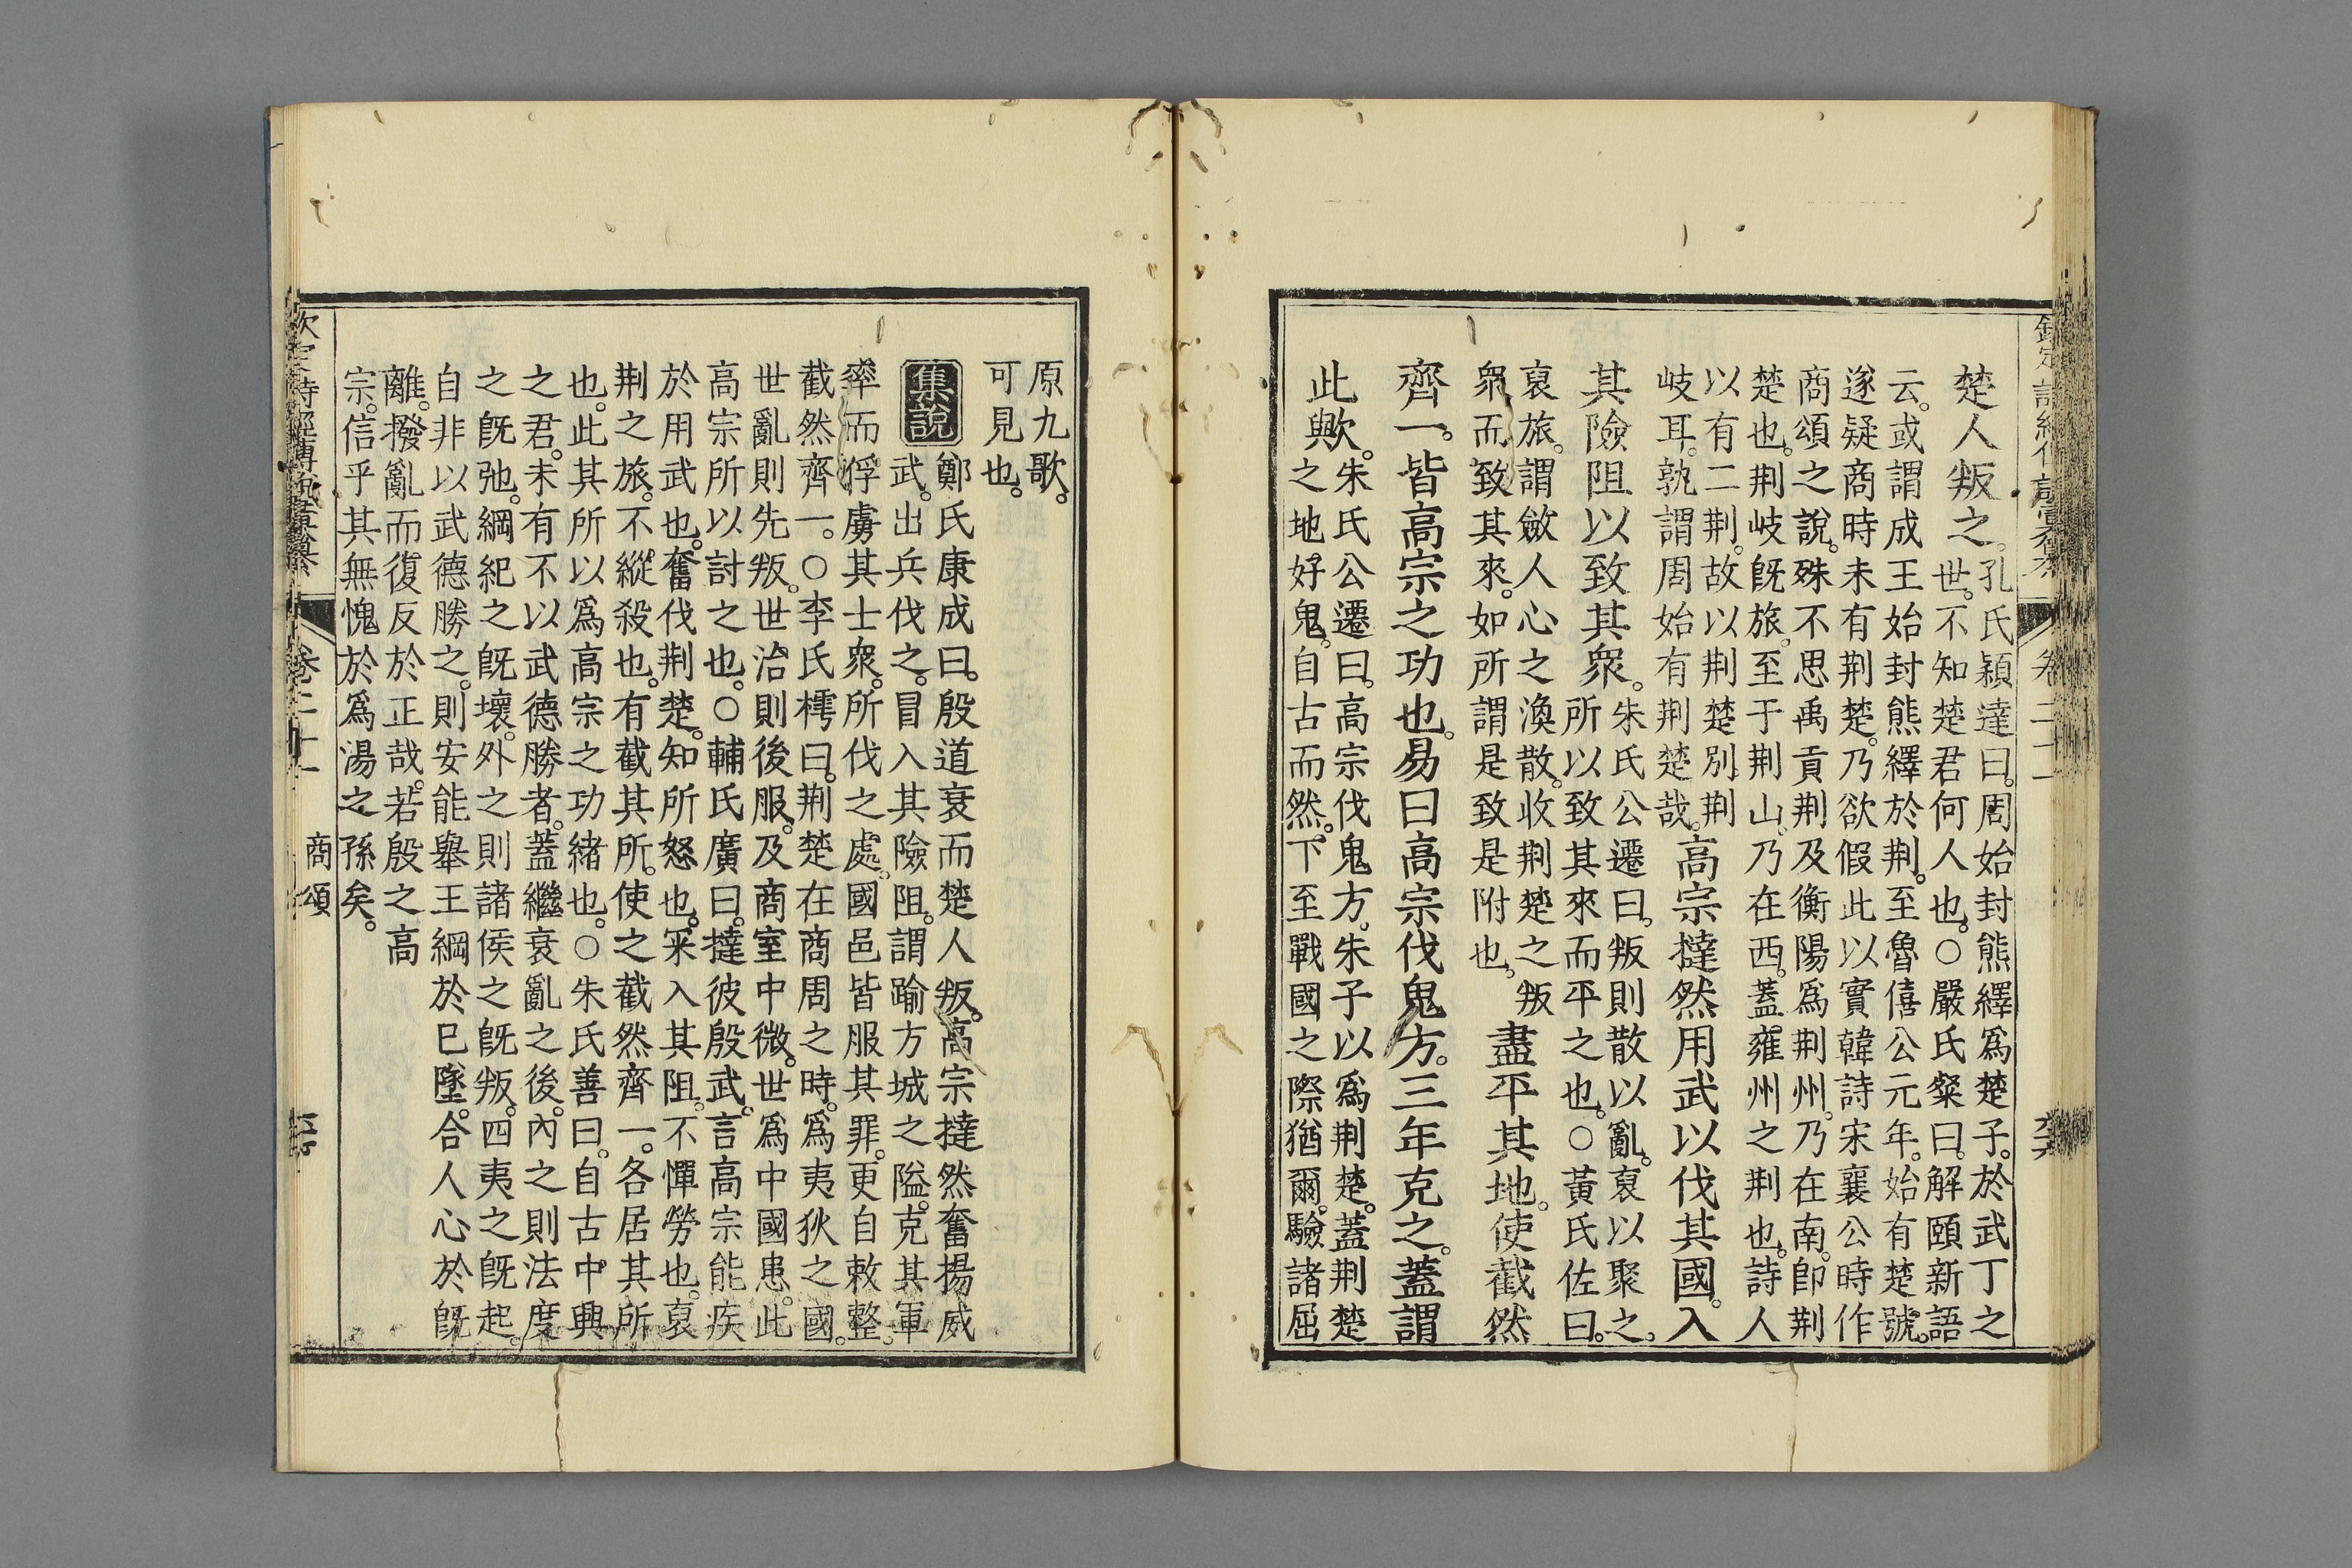 欽定詩經傳說彙纂 卷二十一
楚人叛之。孔氏穎達曰。周始封熊繹爲楚子。於武丁之
世。不知楚君何人也。○嚴氏粲曰。解頤新語
云。或謂成王始封熊繹於荆。至魯僖公元年。始有楚號。
遂疑商時未有荆楚。乃欲假此以實韓詩宋襄公時作
商頌之說。殊不思禹貢荆及衡陽爲荆州。乃在南。卽荆
楚也。荆岐旣旅。至于荆山。乃在西。蓋雍州之荆也。詩人
以有二荆。故以荆楚別荆
岐耳。孰謂周始有荆楚哉。高宗撻然用武以伐其國。入
其險阻以致其衆。朱氏公遷曰。叛則散以亂。裒以聚之。
所以致其來而平之也。○黃氏佐曰。
裒旅。謂斂人心之渙散。收荆楚之叛
衆而致其來。如所謂是致是附也。盡平其地。使截然
齊一。皆高宗之功也。易曰高宗伐鬼方。三年克之。蓋謂
此歟。朱氏公遷曰。高宗伐鬼方。朱子以爲荆楚。蓋荆楚
之地好鬼。自古而然。下至戰國之際猶爾。驗諸屈
原九歌。
可見也。
集說 鄭氏康成曰。殷道衰而楚人叛。高宗撻然奮揚威
武。出兵伐之。冒入其險阻。謂踰方城之隘。克其軍
率而俘虜其士衆。所伐之處。國邑皆服其罪。更自敕整。
截然齊一。○李氏樗曰。荆楚在商周之時。爲夷狄之國。
世亂則先叛。世治則後服。及商室中微。世爲中國患。此
高宗所以討之也。○輔氏廣曰。撻彼殷武。言高宗能疾
於用武也。奮伐荆楚。知所怒也。罙入其阻。不憚勞也。裒
荆之旅。不縱殺也。有截其所。使之截然齊一。各居其所
也。此其所以爲高宗之功緒也。○朱氏善曰。自古中興
之君。未有不以武德勝者。蓋繼衰亂之後。內之則法度
之旣弛。綱紀之旣壞。外之則諸侯之旣叛。四夷之旣起。
自非以武德勝之。則安能舉王綱於已墜。合人心於旣
離。撥亂而復反於正哉。若殷之高
宗。信乎其無愧於爲湯之孫矣。
欽定詩經傳說彙纂 卷二十一 商頌